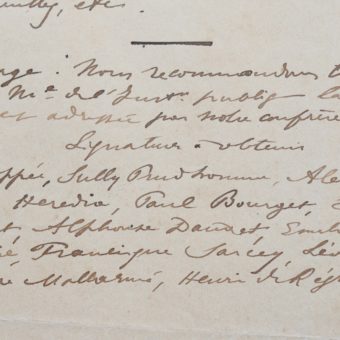 etc.
: Nous recommandons
Me de l'Inst. publiq la
est adressée par notre confrère
Signatures obtenues
ppée, Sully Prudhomme, Ale
Heredia, Paul Bourget,
t Alphonse Daudet, Emil
Francisque Sarcey, Léo
é Mallarmé, Henri de Rég